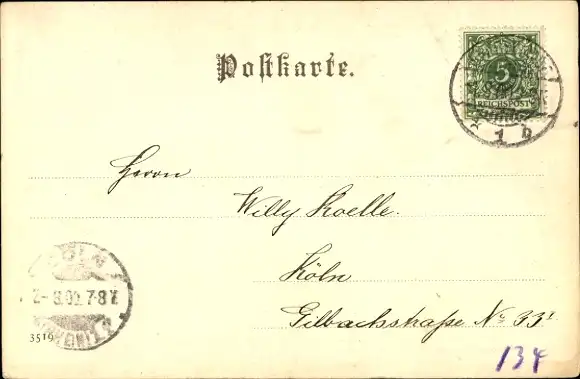 Postkarte.
5
REICHSPOST
1 b
Herrn
Willy Koelle.
Köln
Gilbachstraße No 33!
CÖLN
2-8.00.7-8V.
3519
134